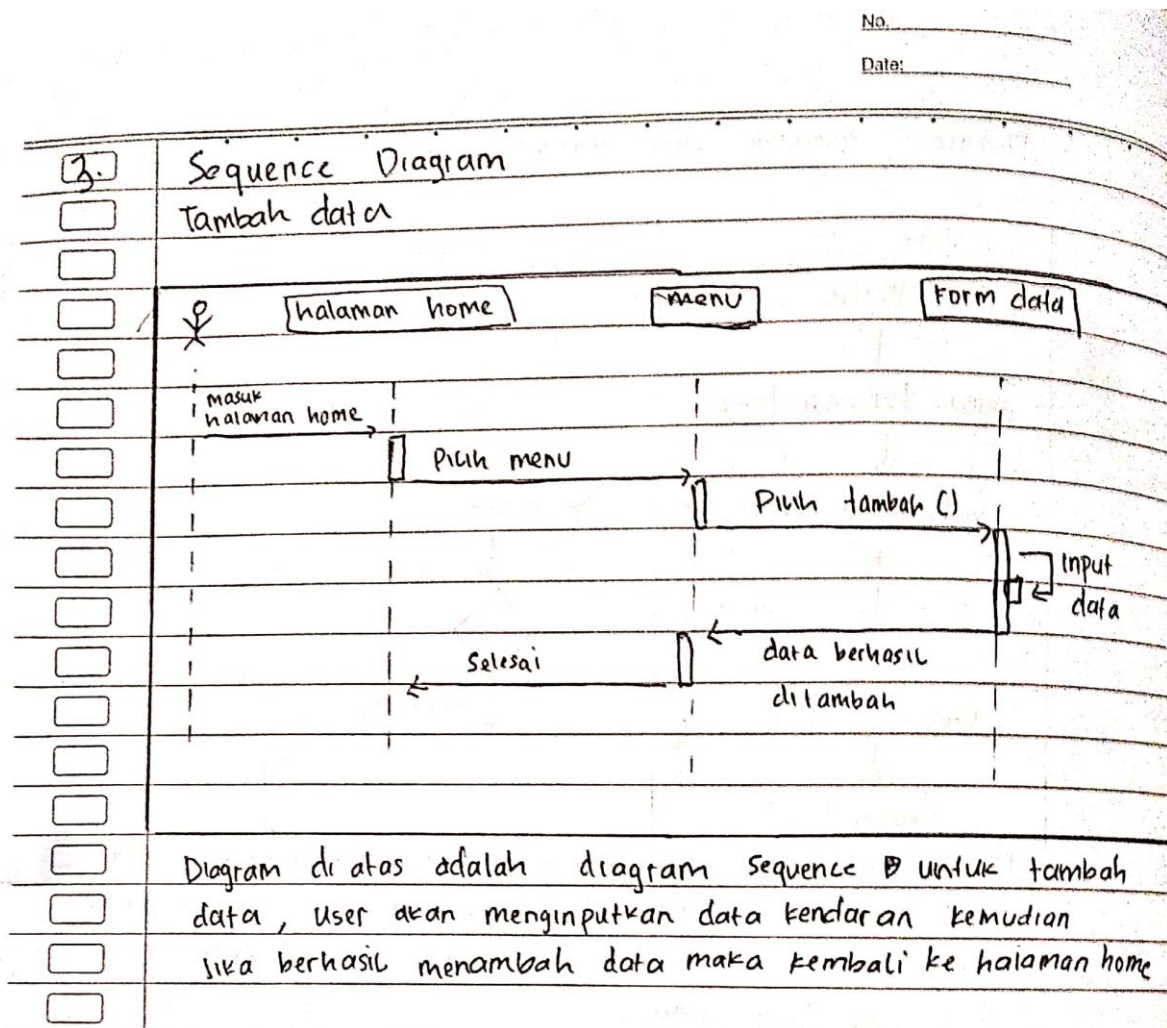 No.
Date:
3. Sequence Diagram
Tambah data
halaman home
menu
Form data
masuk
halaman home
Pilih menu
Pilih tambah ()
input
data
data berhasil
ditambah
Selesai
Diagram di atas adalah diagram sequence untuk tambah
data, user akan menginputkan data kendaran kemudian
jika berhasil menambah data maka kembali ke halaman home